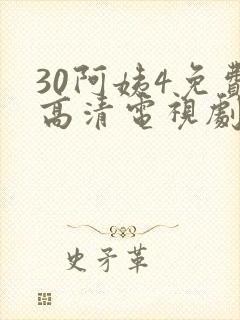 30阿姨4免費
高清電視劇
史矛革